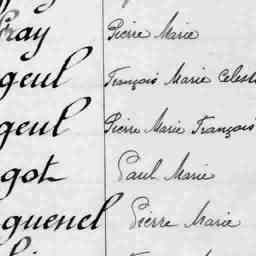 Pray Pierre Marie
geul François Marie Celest
geul Pierre Marie François
got Paul Marie
guenel Pierre Marie